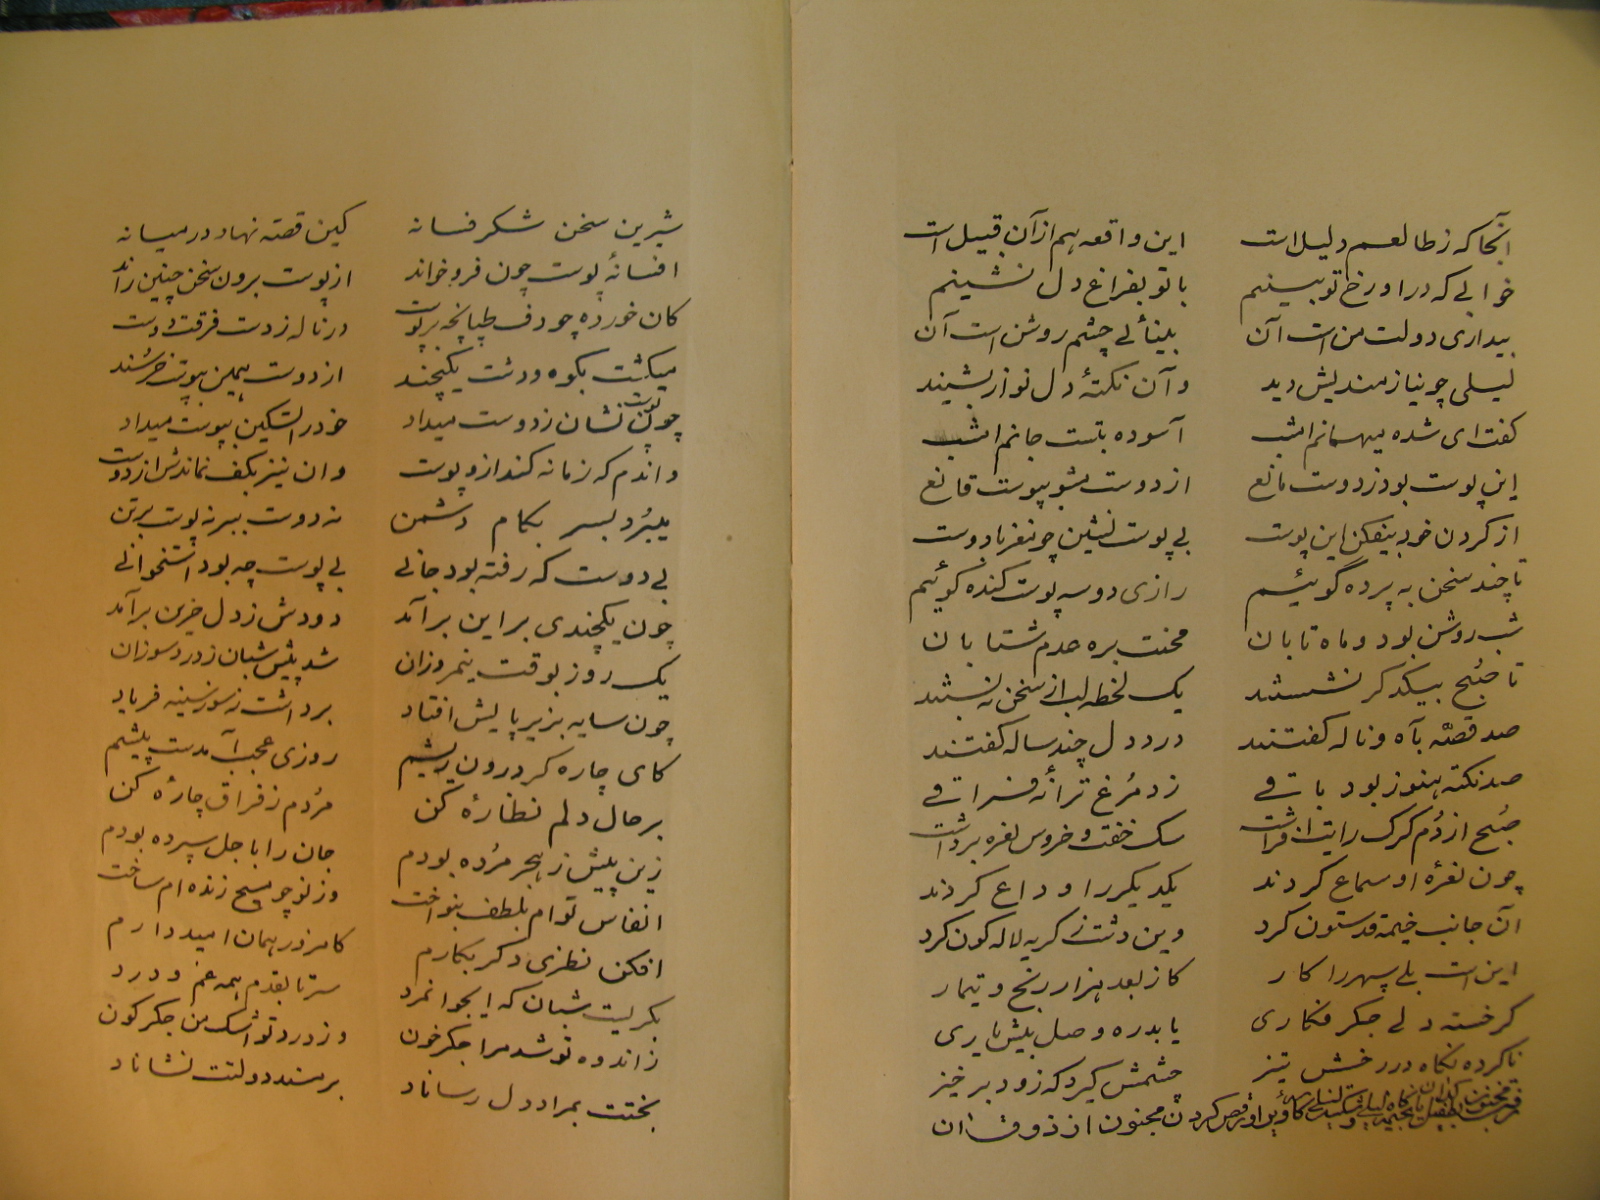 آنجا که ز طالعم دلیل است این واقعه هم از آن قبیل است
خوابی که در او رخ تو بینیم با تو بفراغ دل نشینیم
بیداری دولت من است آن بینائی چشم روشن است آن
لیلی چو نیازمندیش دید و آن نکتهٔ دل نواز بشنید
گفت ای شده میهمانم امشب آسوده بتست جانم امشب
این پوست بود ز دوست مانع از دوست مشو بپوست قانع
از گردن خود بیفکن این پوست بی پوست نشین چو نغز با دوست
تا چند سخن به پرده گوئیم رازی دو سه پوست کنده گوئیم
شب روشن بود و ماه تابان محنت بره عدم شتابان
تا صبح بیکدگر نشستند یک لحظه لب از سخن نه بستند
صد قصّه بآه و ناله گفتند درد دل چند ساله گفتند
صد نکته هنوز بود باقی زد مرغ ترانهٔ فراقی
صبح از دُم گرگ رایت افراشت سگ خفت و خروس نعره برداشت
چون نعرهٔ او سماع کردند یکدیگر را وداع کردند
آن جانب خیمه قد ستون کرد وین دشت ز گریه لاله گون کرد
این است بلی سپهر را کار کاز بعد هزار رنج و تیمار
گر خسته دلی جگر فکاری یابد ره وصل پیش یاری
ناکرده نگاه در رخش تیز چشمش گیرد که زود برخیز
مجنون از ذوق آن
شیرین سخن شکر فسانه کین قصته نهاد در میانه
افسانهٔ پوست چون فرو خواند از پوست برون سخن چنین راند
کان خورده چو دف طپانچه بر پوست در ناله ز دست فرقت دوست
میگشت بکوه و دشت یکچند از دوست همین بپوست خرسند
چون پوست نشان ز دوست میداد خود را تسکین بپوست میداد
و اندم که زمانه کند ازو پوست و ان نیز بکف نماندش از دوست
میبُرد بسر بکام دشمن نه دوست ببر نه پوست بر تن
بی دوست که رفته بود جانی بی پوست چه بود استخوانی
چون یکچندی بر این برآمد دودش ز دل حزین برآمد
یک روز بوقت نیمروزان شد پیش شبان ز درد سوزان
چون سایه بزیر پایش افتاد برداشت ز سوز سینه فریاد
کای چاره گر درون ریشم روزی عجب آمدست پیشم
بر حال دلم نظارهٔ کن مُردم ز فراق چارهٔ کن
زین پیش ز هجر مرُده بودم جان را با جل سپرده بودم
انفاس توام بلطف بنواخت وز نو چو مسیح زنده ام ساخت
افکن نظری دگر بکارم کامروز همان امید دارم
بگریست شبان که ایجوانمرد سر تا بقدم همه غم و درد
ز اندوه تو شد مرا جگر خون وز درد تو اشک من جگر گون
بختت بمراد دل رساناد بر مسند دولتت نشاناد